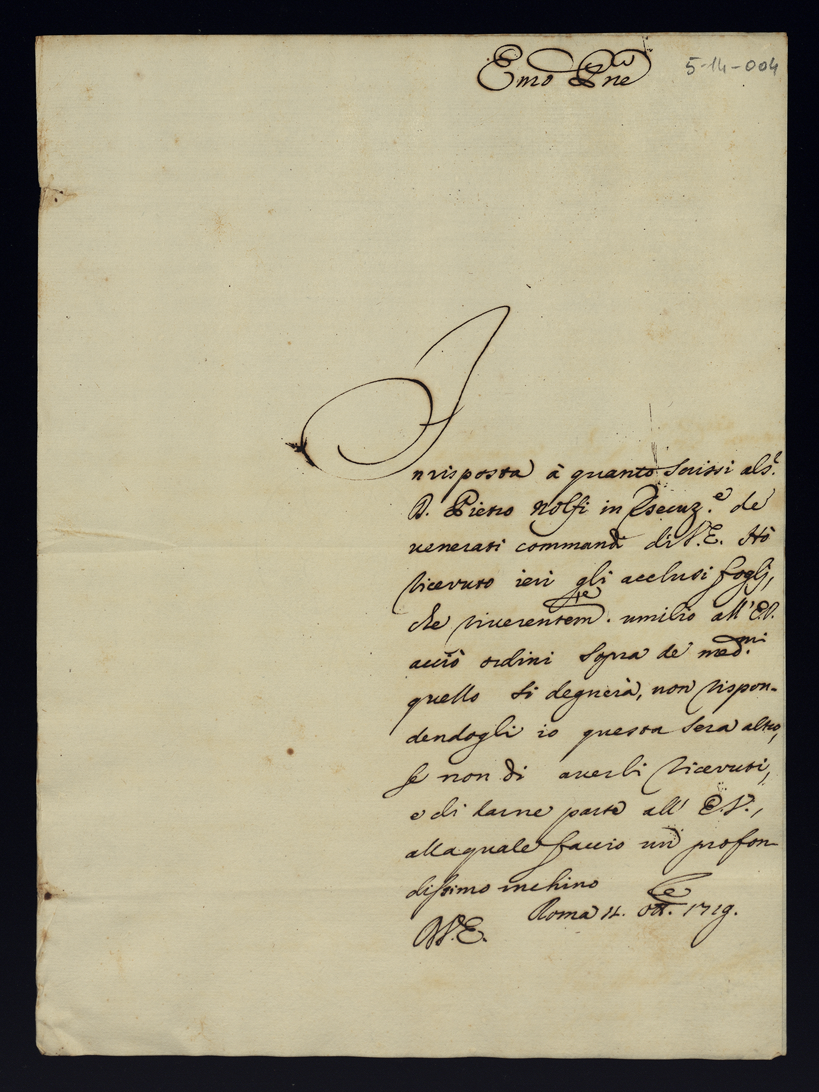 Emo Pnê
5-14-004
In risposta à quanto scrissi al Sr.
D. Pietro Nolfi in esecuz.e de
venerati commandi di V.E. Hò
ricevuto ieri gli acclusi foglj,
che riverentem.te umilio all'E.V.
acciò ordini sopra de med.mi
quello si degnerà, non rispon-
dendogli io questa sera altro,
se non di averli ricevuti,
e di darne parte all' E.V.,
alla quale faccio un profon-
dissimo inchino
Roma 14. Ott.re 1719.
D.V.E.